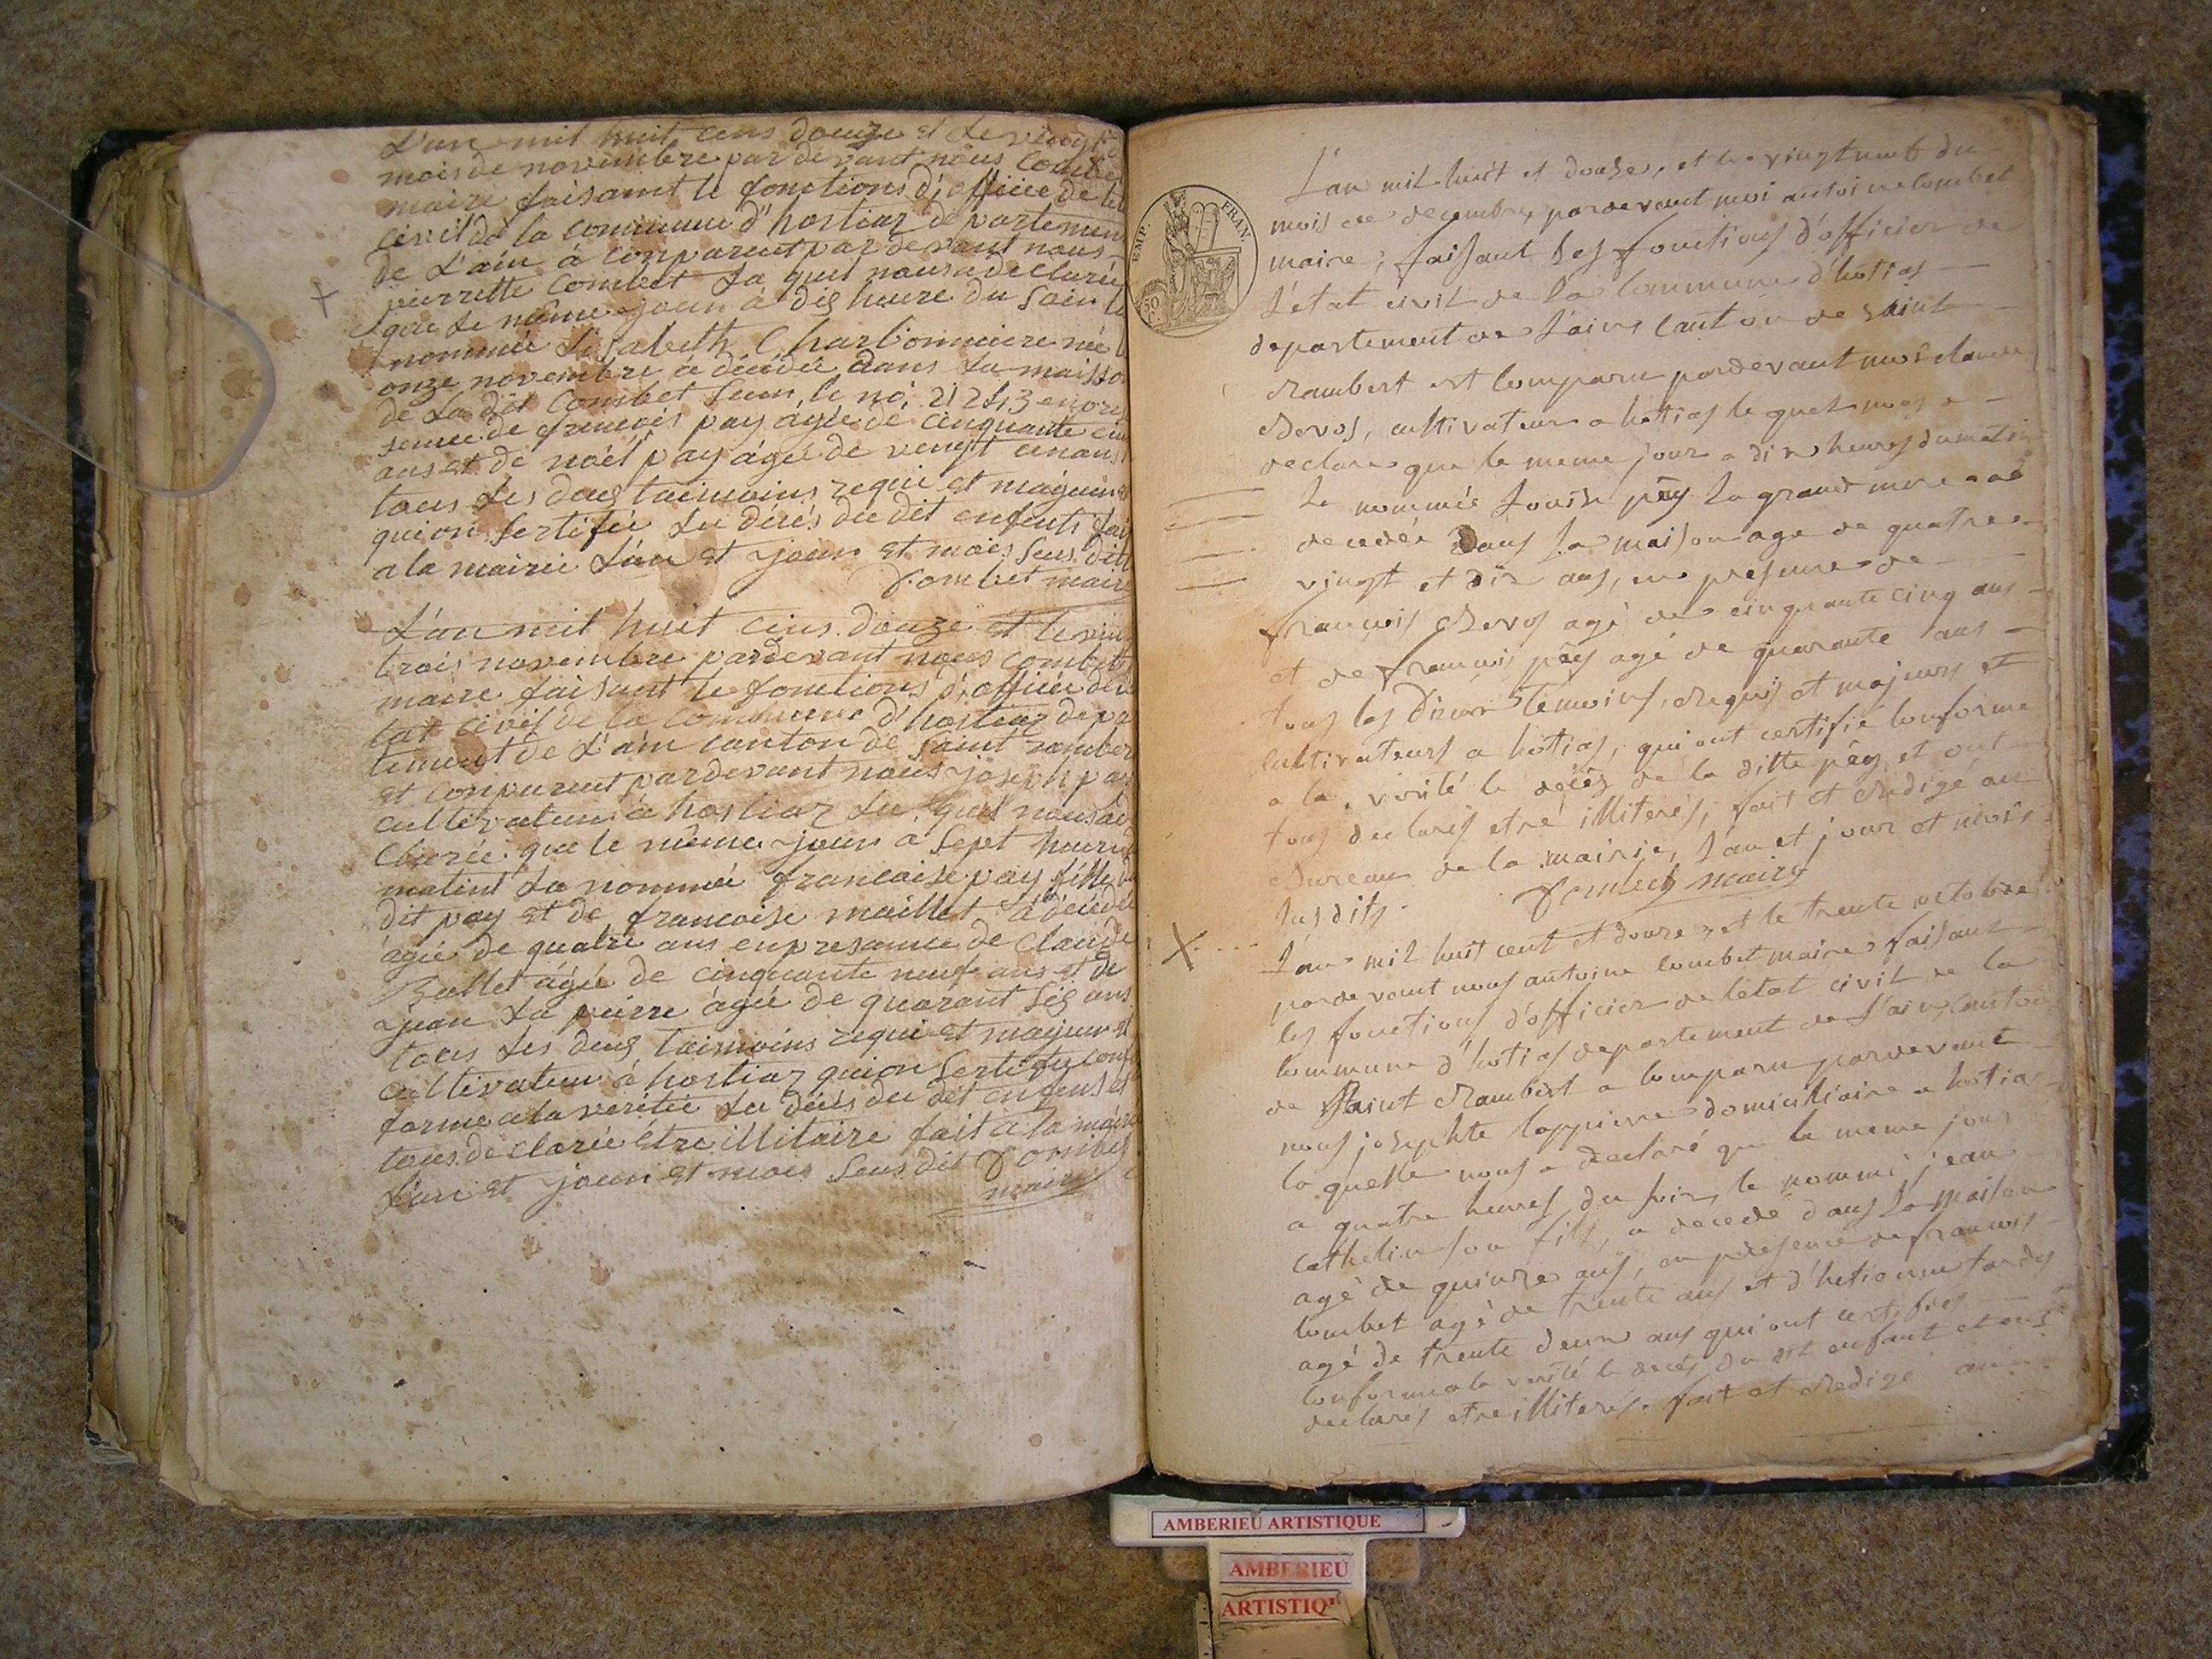 L'an mil huit cens douze et le vingt
mois de novembre par devant nous Combet
maire faisaint le fonctions d'office de lét
cívil de la commune d'hostiaz departemen
de L'ain à conparent par devant nous
pierrette Combet La quel nousa declarée
que Le même jour à dis heure du Soir la
nommée Lisabeth Charbonniere née le
onze novembre à décédée dans La maisson
de La dit Combet Seun, le no. 21 2L,3 en pré
sence de francois pay agée de cinquante cin
ans et de noél pay ágée de vengt cin ans
tous Les deus taimoins requi et mageur et
qui on Sertifié Le décés du dit enfents fai
a la mairie L'an et jour et mois Sus dit
Combet maire
L'an mil huit cens douze et le vin
trois novembre pardevant nous Combet
maire faisant le fonctions d'officié de lé
tat civil de la Commune d'hostiaz depar
tement de L'ain canton de Saint ramber
et conparent pardevant nous joseph pay
cultivateur à hostiaz Le quel nousa de
Clarée que le même jour à Sept heure du
matint La nommée francaise pay fille du
dit pay et de francoise maillet à décédée
ágée de quatre ans en presance de Claude
Ballet ágée de cinquante neuf ans et de
jean La peirre ágée de quarant Sis ans
tous Les deus taimoins requi et mageur et
cultivateur à hostiaz qui on Sertifié con
forme a la verítée Le décés du dit enfens et
tous de clarée étre illitaire fait a la mairie
L'an et jour et mois Sus dit Combet
maire
EMP. FRAN.
50 C.
L'an mil huit et douse, et le vingt neuf du
mois de decembre, pardevant moi antoine Combet
maire; faisant les fonctions d'officier de
l'etat civil de la Commune d'hotias
departement de l'ain, canton de saint
Rambert est Comparu pardevant moi claude
Bevos, cultivateur a hotias le quel nous a
declare que le meme jour a dix heures du matin
Le nommée Louise pèy La grand mere a été
decedée Dans sa maison age de quatre
vingt et dix ans, en presence de
francois Bevos agé de cinquante cinq ans
et de francois pèy agé de quarante ans
tous les Deux temoins, Requis et majeurs et
Cultivateurs a hotias, qui ont certifié Conforme
a la verité le décès de la ditte pèy et ont
tous declarés etre illiterés, fait et Redigé au
Bureau de la mairie, L'an et jour et mois
susdits. Combet maire
L'an mil huit cent et douze, et le trente octobre
pardevant nous antoine Combet maire faisant
les fonctions d'officier de l'état civil de la
Commune d'hotias departement de l'ain, Canton
de Saint Rambert a Comparu pardevant
nous josephte Lappierre domiciliaire a hotias
la quelle nous a declaré que le meme jour
a quatre heures du soir, le nommé jean
Cathelin son fils, a decedé dans sa maison
agé de quinze ans, en presence de francois
Combet agé de trente ans et d'hetienne tardy
agé de trente deux ans qui ont certifiés
Conforme a la verité le decès du dit enfant et ont
declarés etre illiterés. fait et Redigé au
AMBERIEU ARTISTIQUE
AMBERIEU
ARTISTIQ